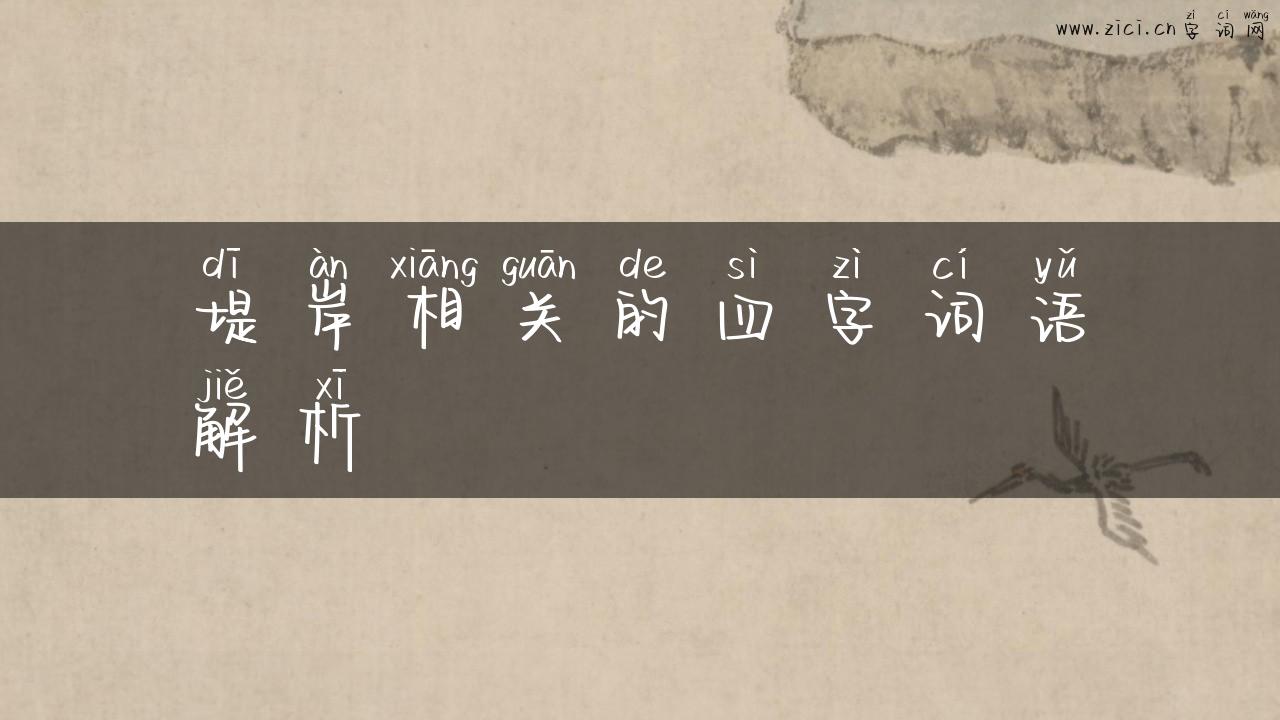 zì cí wǎng
www.zici.cn 字词网
dī àn xiāng guān de sì zì cí yǔ
堤岸相关的四字词语
jiě xī
解析